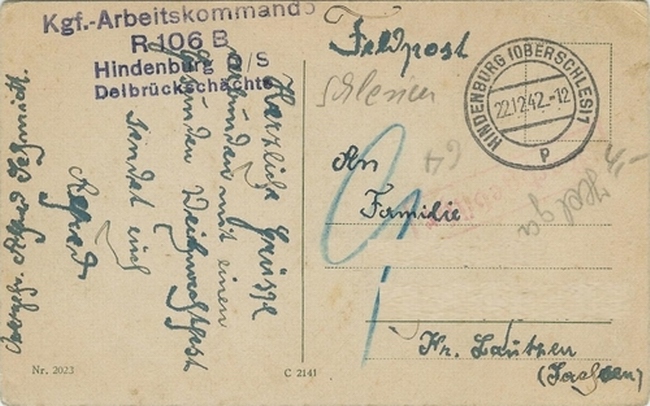 Kgf.-Arbeitskommando
R 106 B
Hindenburg O/S
Delbrückschächte
Feldpost
Schlesien
HINDENBURG (OBERSCHLES) 1
22.12.42.-12
P
An
Familie
Kr. Bautzen
(Sachsen)
Herzliche Grüsse
verbunden mit einen
gesunden Weihnachtsfest
sendet euch
Alfred
Alfred Schmidt.
Helga
64
Nr. 2023
C 2141